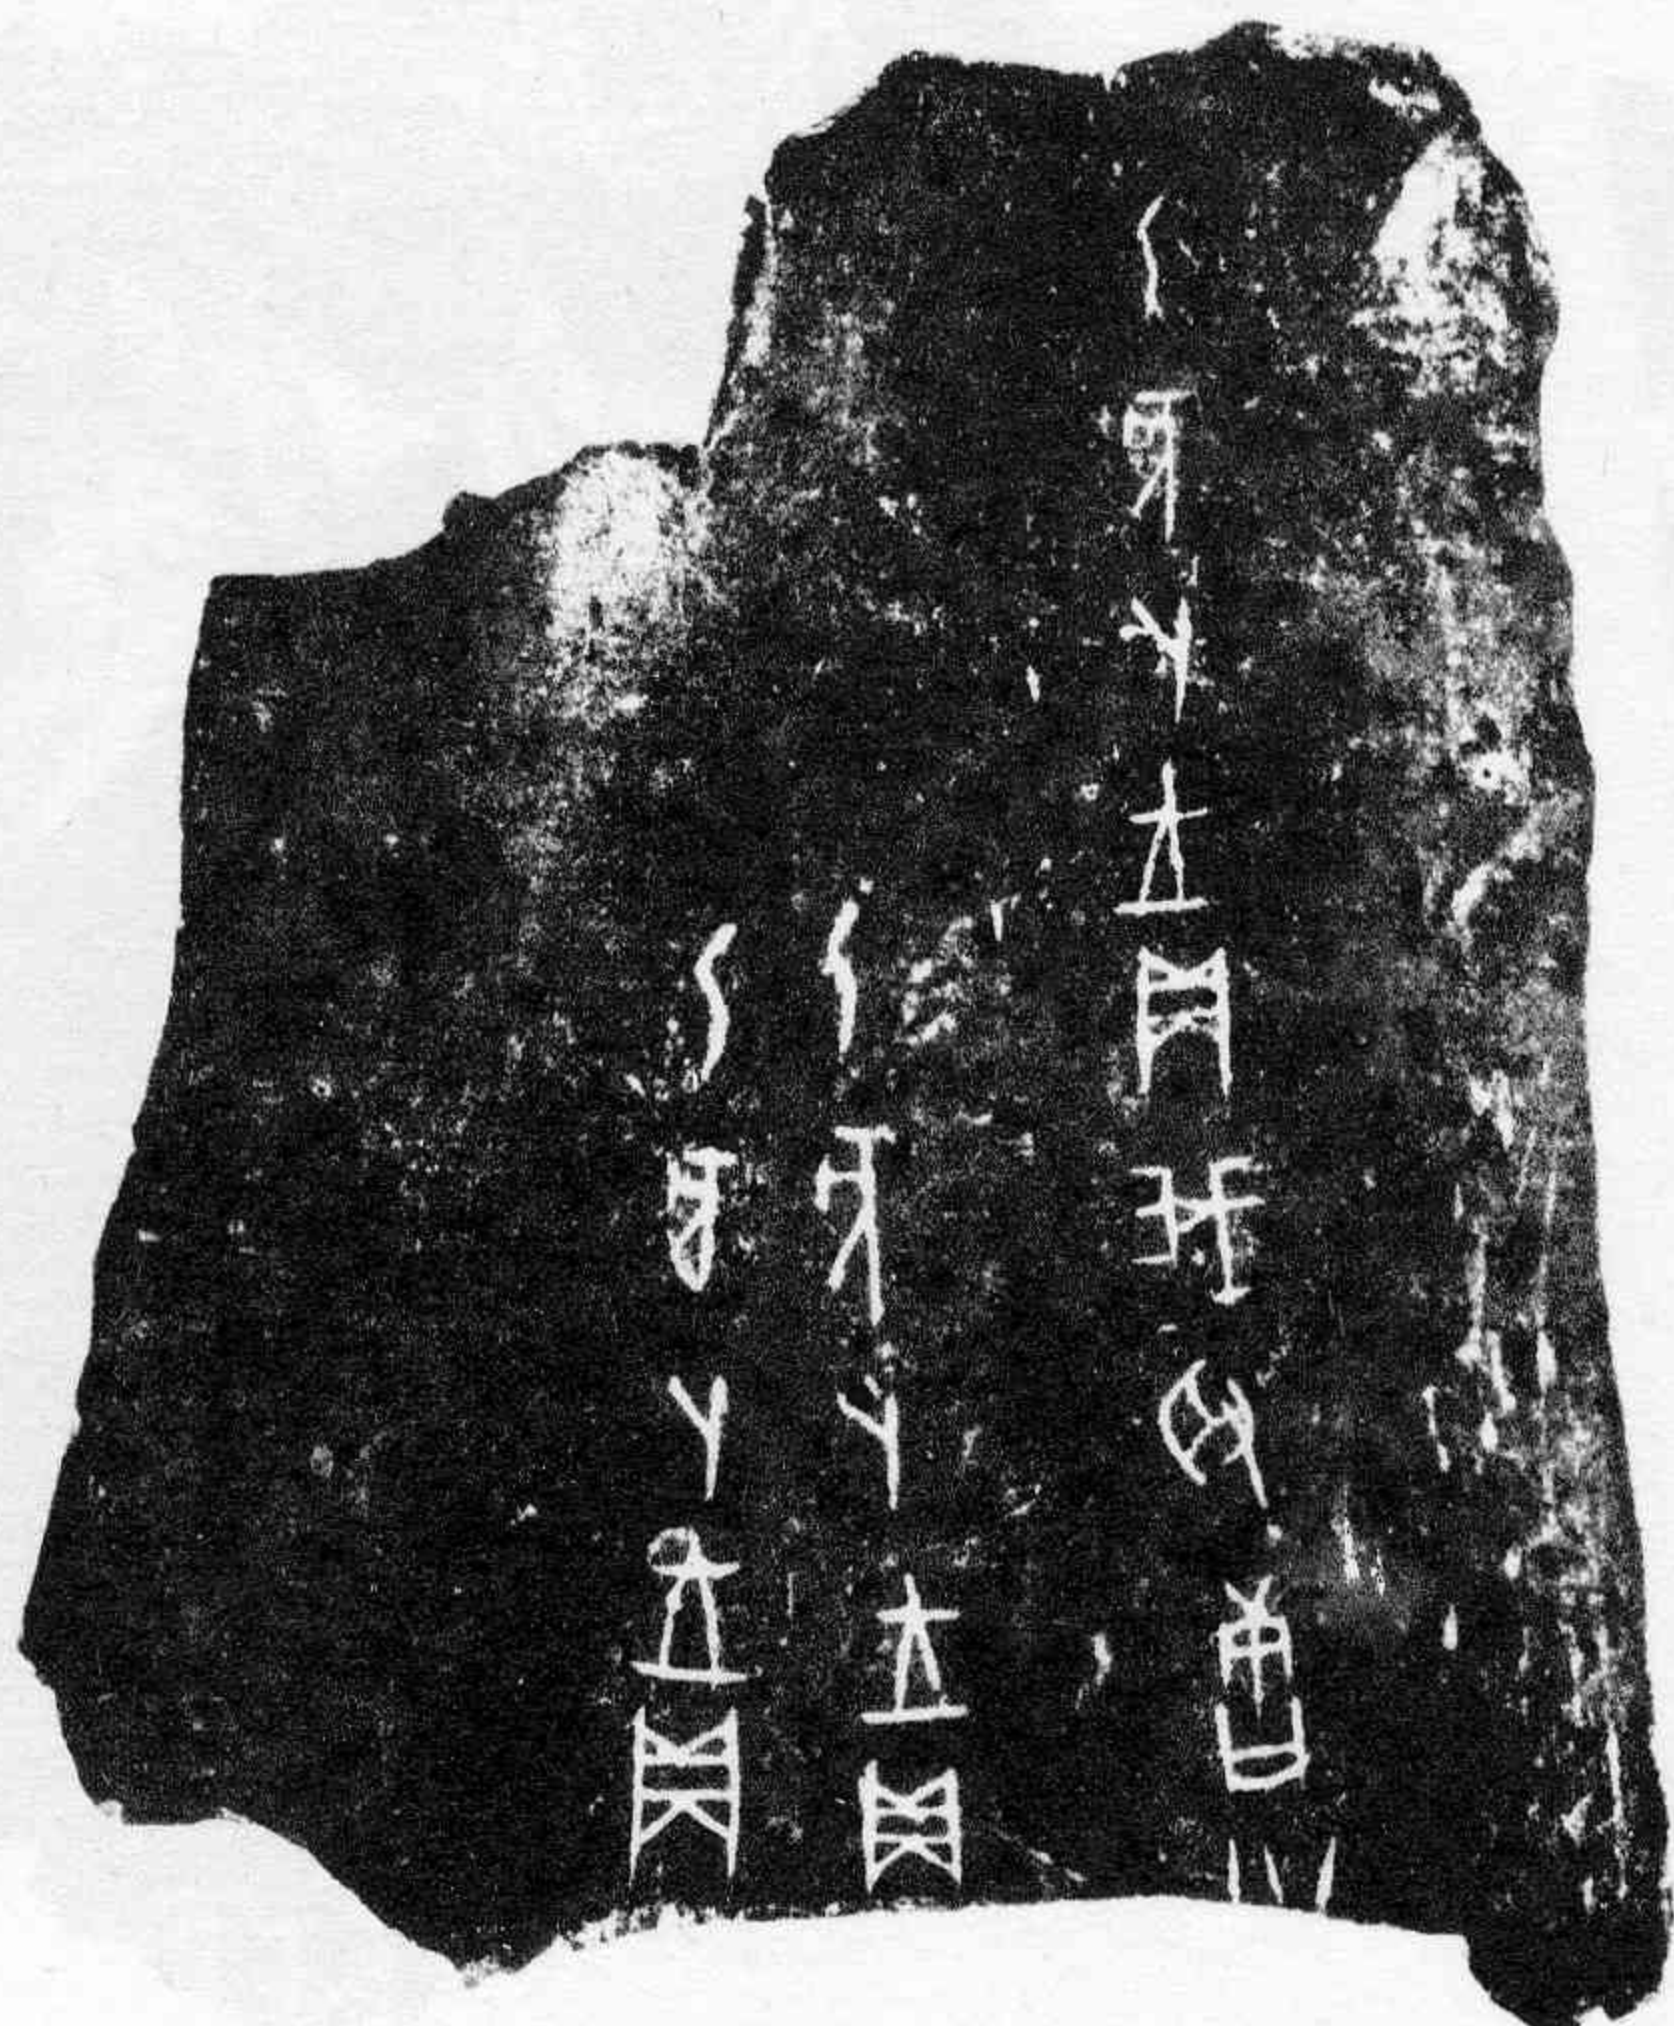 乙亥卜王貞我取唐
乙亥卜王貞
乙卜王貞